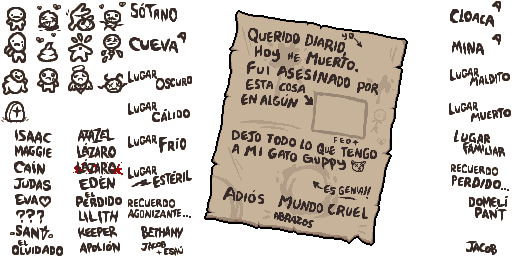 SÓTANO
CUEVA
LUGAR OSCURO
LUGAR CÁLIDO
LUGAR FRÍO
LUGAR ESTÉRIL
RECUERDO AGONIZANTE...
ISAAC
MAGGIE
CAÍN
JUDAS
EVA
???
-SANS-
EL OLVIDADO
AZAZEL
LÁZARO
LÁZARO
EDÉN
EL PERDIDO
LILITH
KEEPER
APOLIÓN
BETHANY
JACOB + ESAÚ
QUERIDO DIARIO,
YO
HOY HE MUERTO.
FUI ASESINADO POR
ESTA COSA
EN ALGÚN
FEO+
DEJO TODO LO QUE TENGO
A MI GATO GUPPY
ES GENIAL!!
ADIÓS MUNDO CRUEL
ABRAZOS
CLOACA
MINA
LUGAR MALDITO
LUGAR MUERTO
LUGAR FAMILIAR
RECUERDO PERDIDO...
DOMELI PANT
JACOB